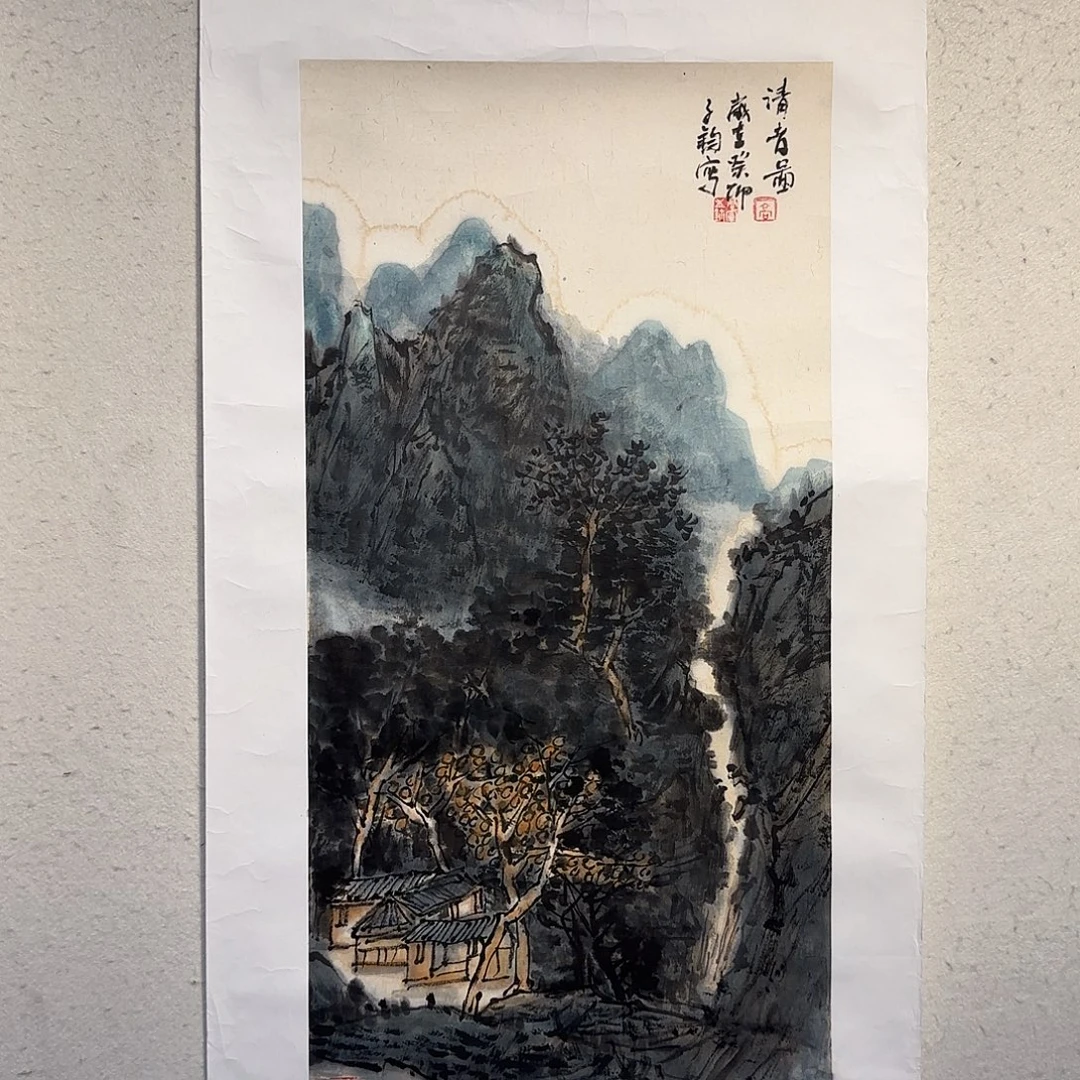 清音图
岁在癸卯
子钧写